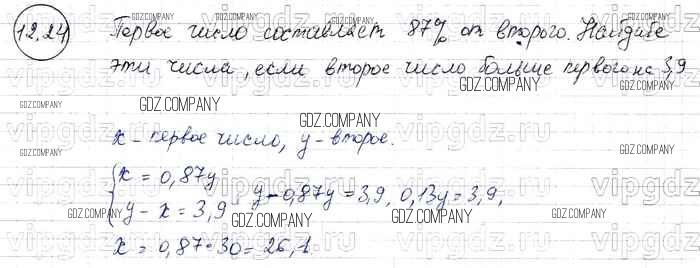 12.24 Первое число составляет 87% от второго. Найдите
эти числа, если второе число больше первого на 3,9.
x - первое число, y - второе.
{ x = 0,87y
{ y - x = 3,9 y - 0,87y = 3,9, 0,13y = 3,9,
x = 0,87·30 = 26,1.
GDZ.COMPANY
vipgdz.ru